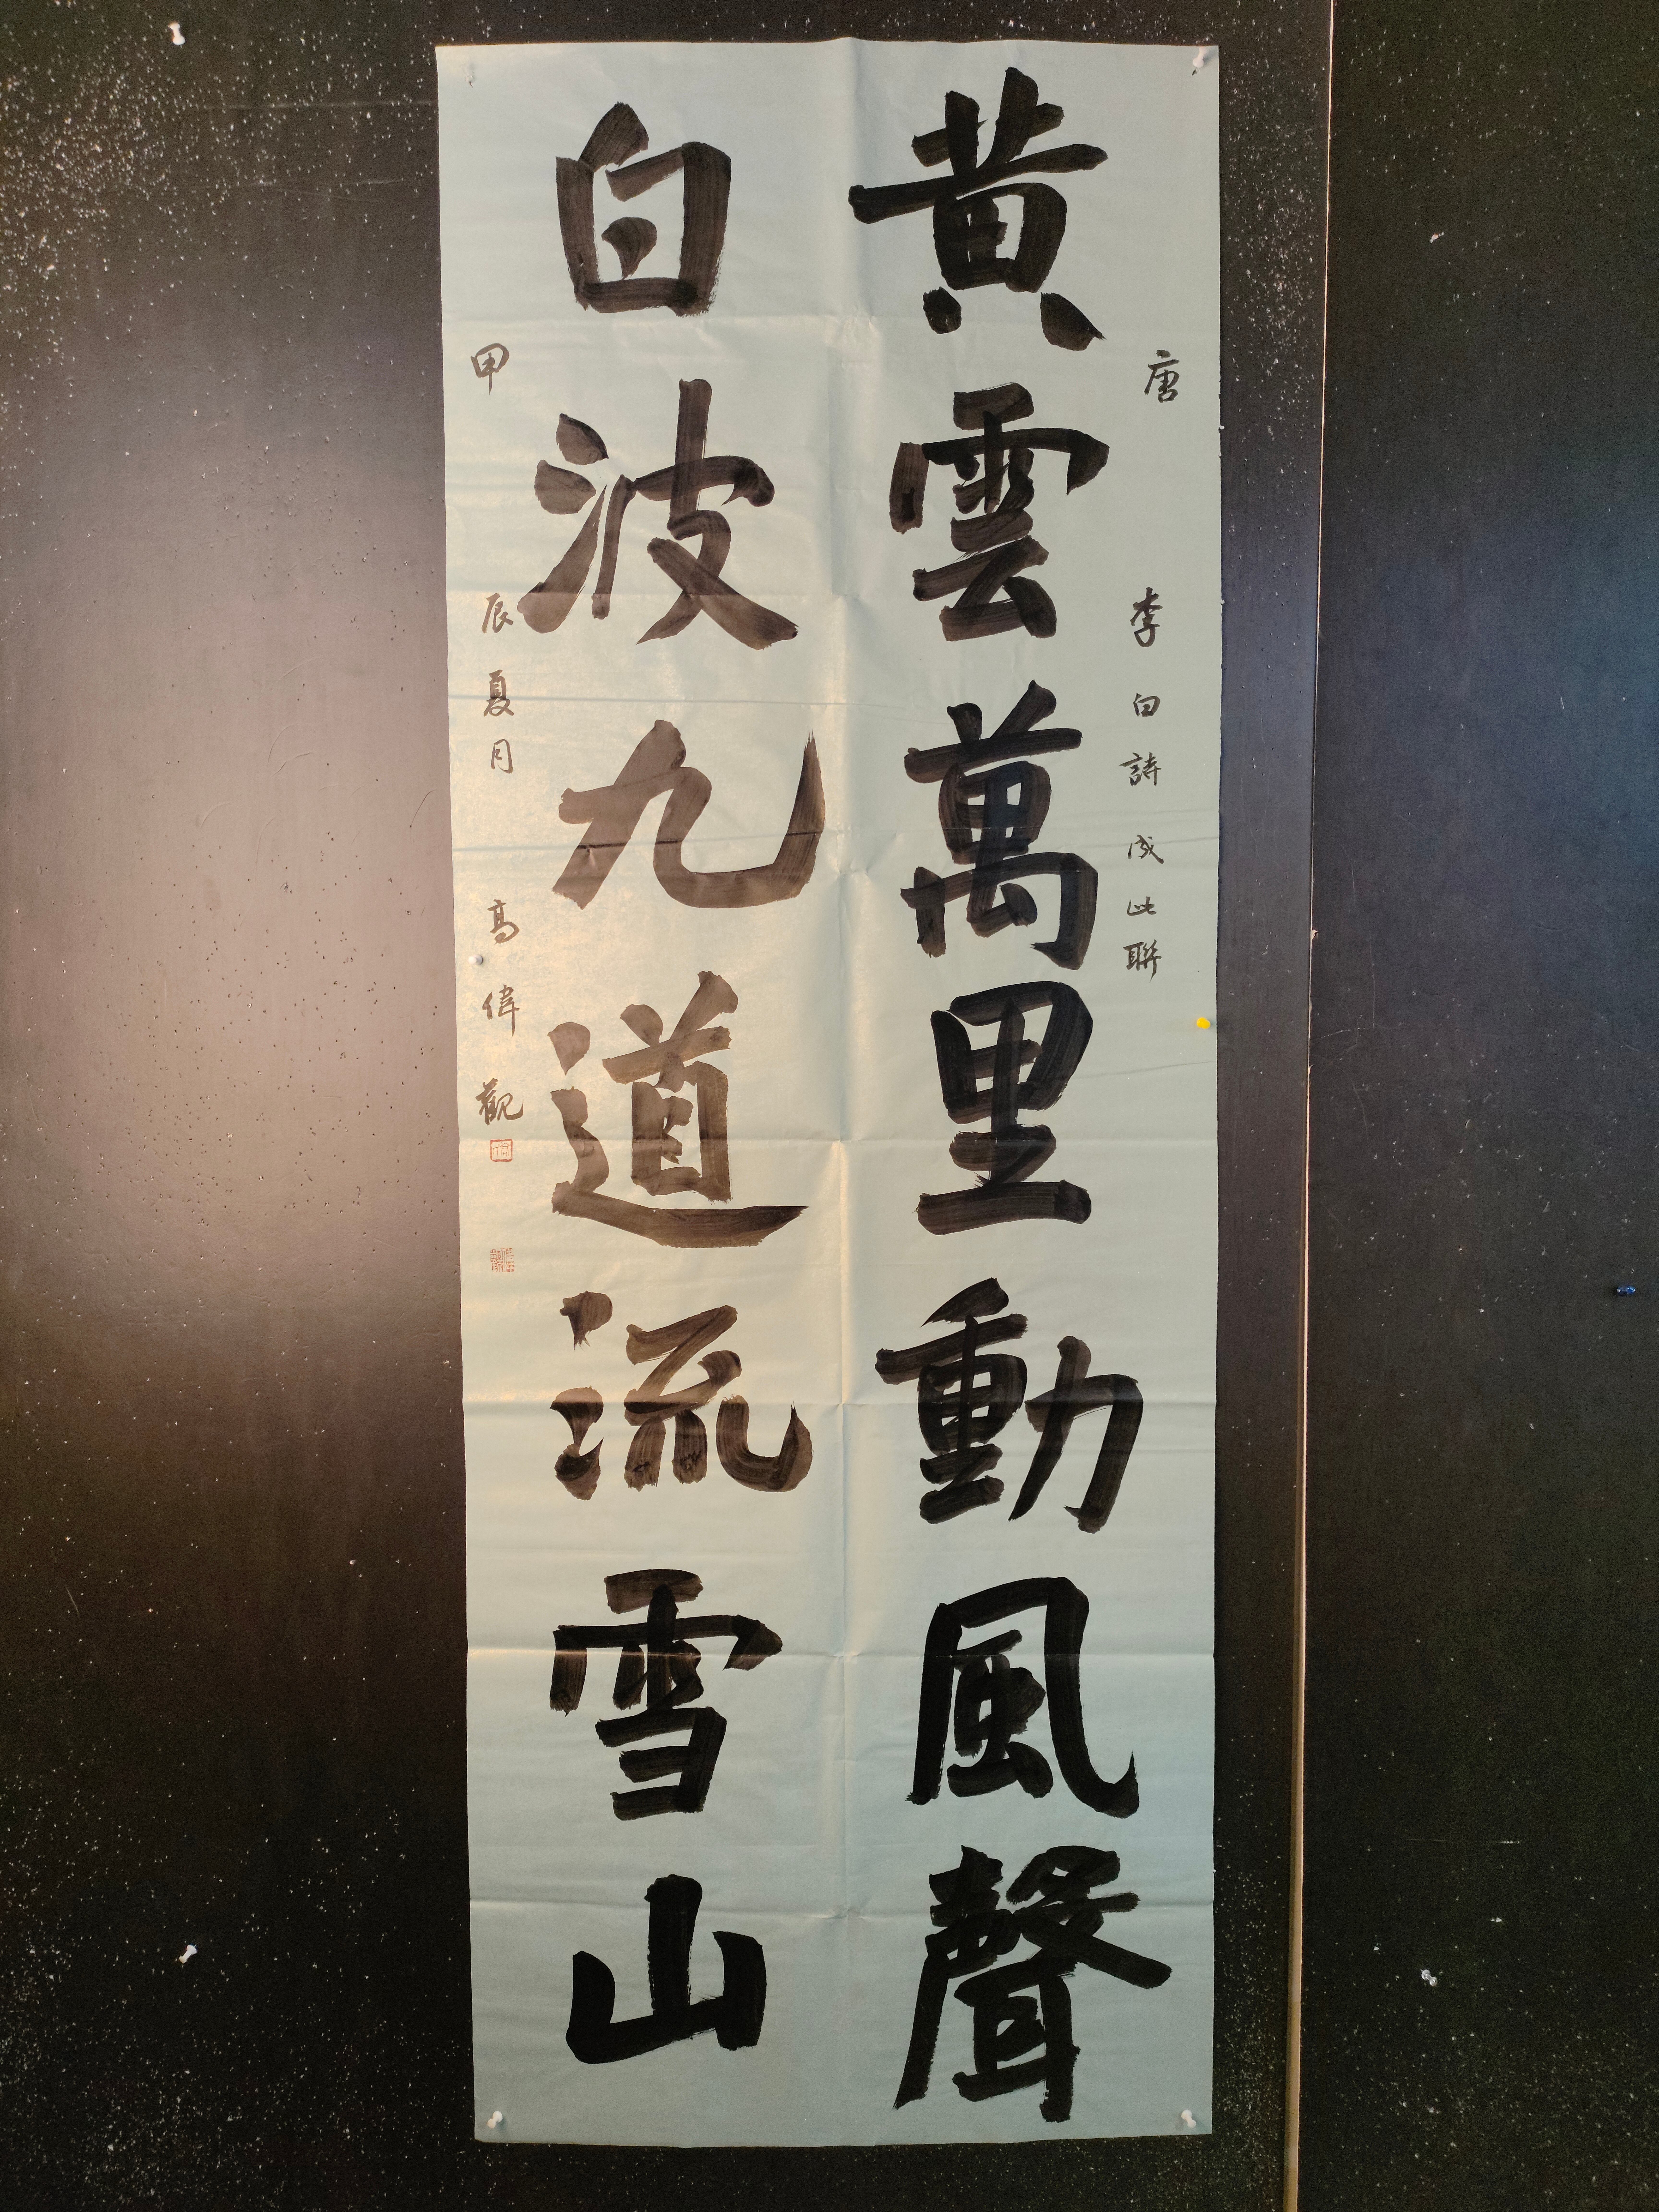 黃雲萬里動風聲
唐李白詩成此聯
白波九道流雪山
甲辰夏月高偉觀